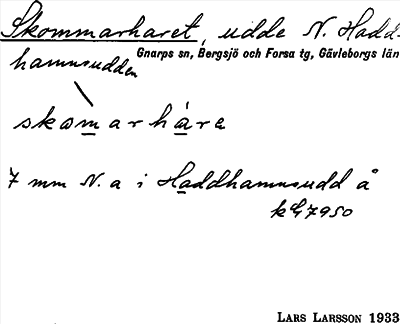 Skommarharet, udde N. Hadd-
Gnarps sn, Bergsjö och Forsa tg, Gävleborgs län
hamnsudden
skomarhare
7 mm N. a i Haddhamnsudd å
k G7950
LARS LARSSON 1933